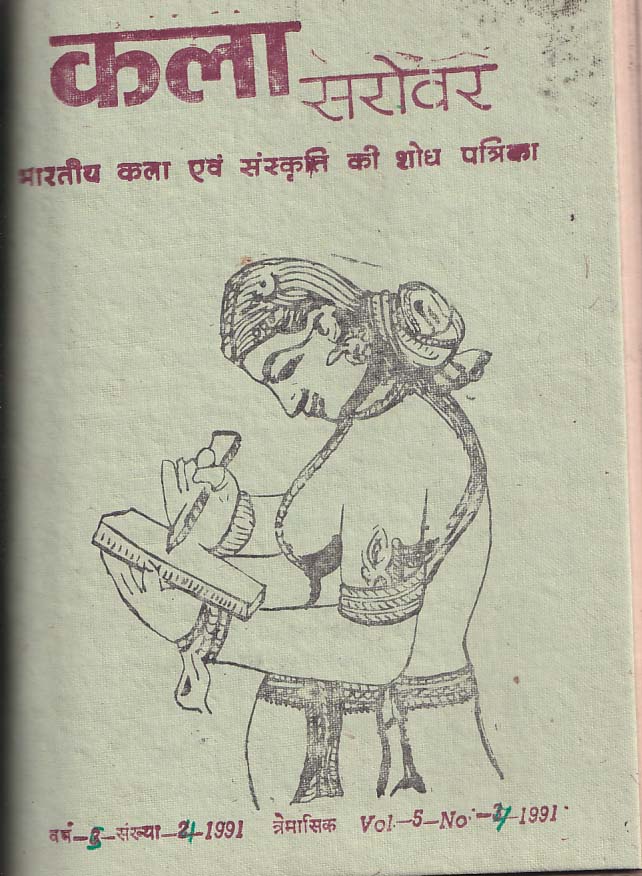 कला
सरोवर
भारतीय कला एवं संस्कृति की शोध पत्रिका
वर्ष-5-संख्या-2-1991 त्रैमासिक Vol.-5-No:-2-1991